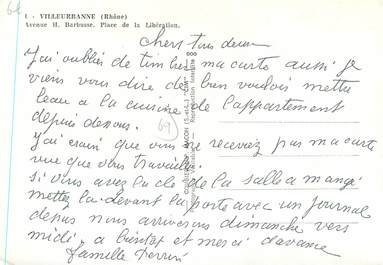 1 - VILLEURBANNE (Rhône)
Avenue H. Barbusse. Place de la Libération.
chers tous deux
J'ai oublié de timbrer ma carte aussi je
viens vous dire de bien vouloir mettre
l'eau a la cuisine de l'appartement
depuis dessous.
J'ai craint que vous ne receviez pas ma carte
vue que vous travaillez
si vous avez la clé de la salle a mangé
mettez la devant la porte avec un journal
depas nous arriverons dimanche vers
midi. a bientot et merci davance
famille Perrin
69
Reproduction interdite